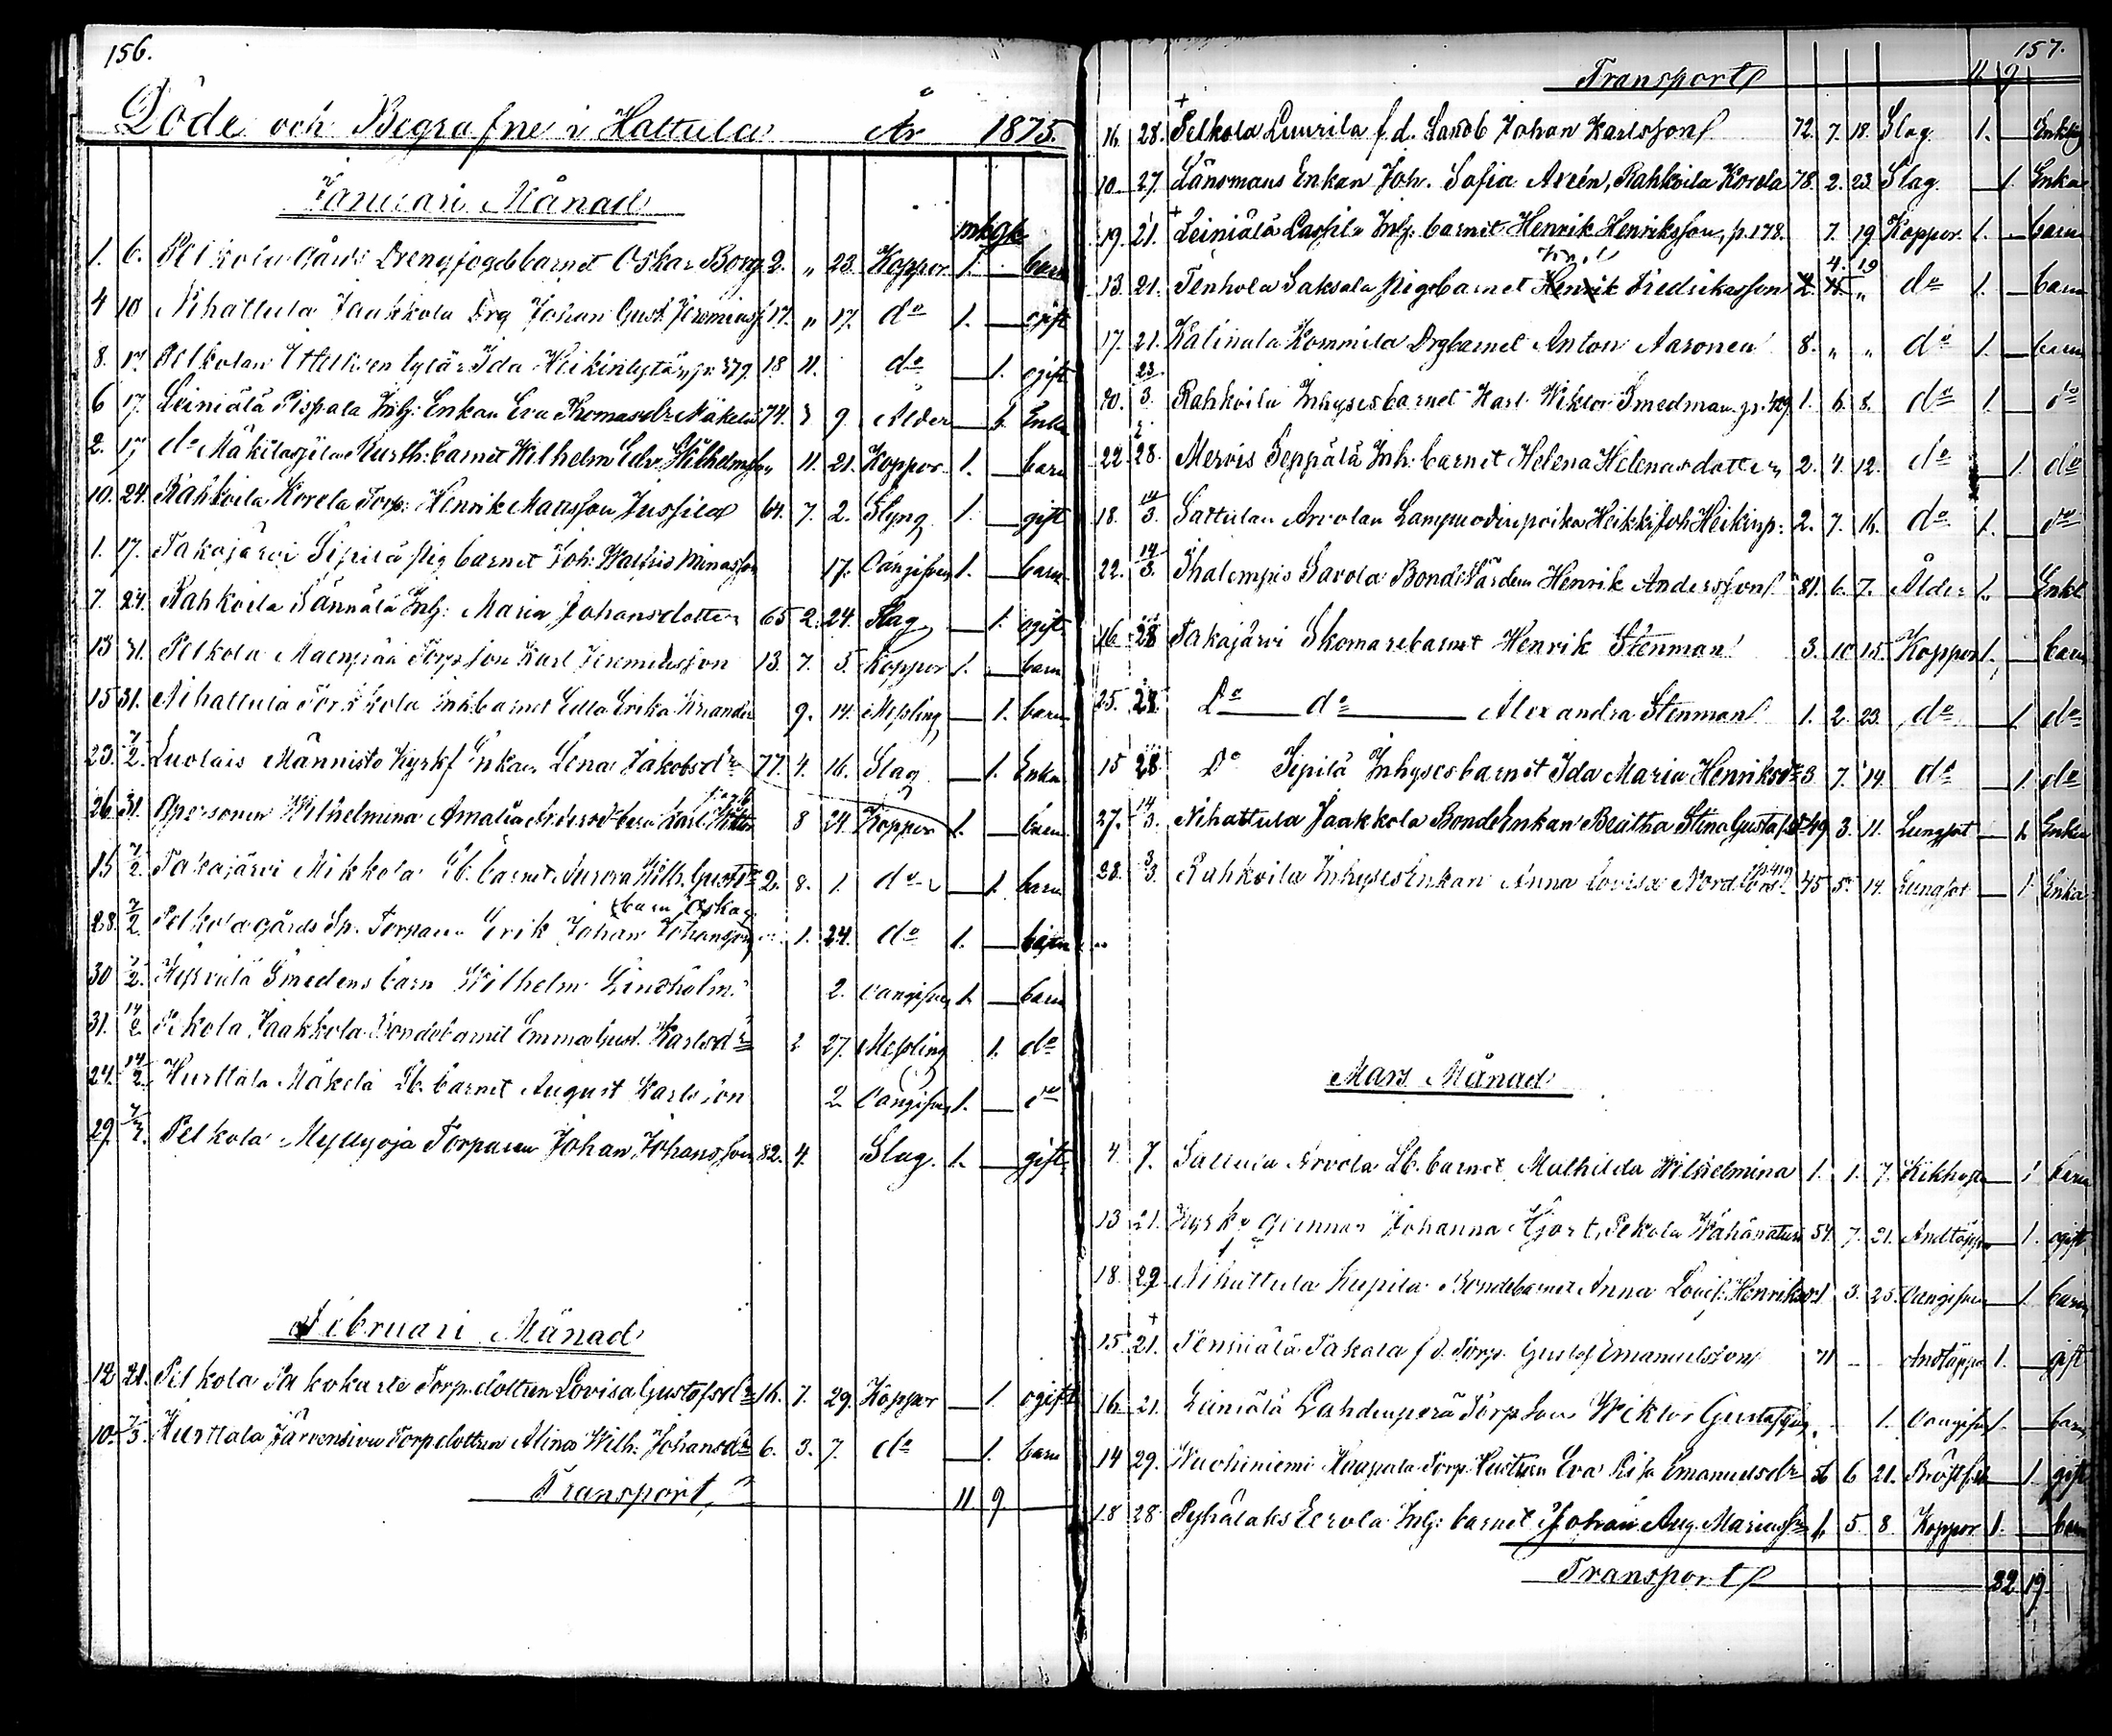 156.
Döde och Begrafne i Hattula År 1875.
Januari Månad
mk qk
1. 6. Pelkola Gårds Drengfogdebarnet Oskar Borg 2. " 23. Koppor 1. barn
4 10 Nihattula Jaakkola Drg Johan Gust. Jeremiass 17. " 17. do 1. — ogift
8. 17 Pelkolan Ida Heikintytär, p. 379. 18 11. do — 1. ogift
6 17. Leiniälä Pispala Inh: Enkan Eva Thomasdr Mäkelä 74. 3 9. Ålder — 1. Enka
2. 17 do Mäkiläs barnet Wilhelm Edv. Wilhelmss " 11. 21. Koppor 1. — barn
10. 24. Rahkoila Korela Torp: Henrik Mattsson Jussila 64. 7. 2. Styng 1. — gift
1. 17. Takajärvi Sipilä Pig barnet Joh: Walfrid Minasson 17. Oangifven 1. — barn
7. 24. Rahkoila Sännälä Inh: Maria Johansdotter 65 2. 24. Slag — 1. ogift
13 31. Pelkola Maenpää Torp son Karl Jeremiasson 13. 7. 5. Koppor 1. — barn
15 31. Nihattula inh barnet Edla Erika 9. 14. Messling — 1. barn
23. 7/2. Luolais Männistö Enkan Lena Jakobsdr 77. 4. 16. Slag — 1. Enka
26 31. Qpersonen Wilhelmina Amalia Andersdr barn Karl 8 24. Koppor 1. — barn
15 7/2. Takajärvi Mikkola Lb. barnet Aurora Wilh. Gustdr 2. 8. 1. do — 1. barn
barn Oskar
28. 7/2 Pelkola gårds Sp. Torparen Erik Johan Johansson 1. 24. do 1. — barn
30 7/2. Smedens barn Wilhelm Lindholm. 2. oangifven 1. — barn
31. 14/2 Pekola Jaakkola Bondebarnet Emma Gust. Karlsdr 2 27. Messling 1. do
24. 14/2. Hurttala Mäkelä Lb. barnet August Karlsson 2 Oangifven 1. — do
29. Pelkola Myllyoja Torparen Johan Johansson 82. 4. Slag. 1. — gift
Februari Månad
12 21. Pelkola Torp. dottren Lovisa Gustafsdr 16. 7. 29. Koppor — 1. ogift
10. 7/3. Hurttala Järvensivu Torp dottren Alina Wilh. Johansdr 6. 3. 7. do — 1. barn
Transport, 11 9.
157.
Transport 11 9
16. 28. Pelkola Luurila f.d. Landb Johan Karlsson 72. 7. 18. Slag. 1. — Enkling
10. 27. Länsmans Enkan Joh. Sofia Arén, Rahkoila Korela 78. 2. 23. Slag. — 1. Enka
19. 21. Leiniälä Inh. barnet Henrik Henriksson, p. 178. 7. 19 Koppor 1. — barn
4. 19
13. 21. Tenhola Saksala Pigebarnet Henrik Fredrikasson do 1. — barn
17. 21. Katinala Kommila Drg barnet Anton Aaronen 8. " " do 1. — barn
20. 3. Rahkoila Inhysesbarnet Karl Wiktor Smedman, p. 429 1. 6. 8. do 1. do
22 28. Mervis Seppälä Inh. barnet Helena Helenasdotter 2. 4. 12. do 1. do
18. 14/3. Sattulan Arvolan Lampuodinpoika Heikki Joh Heikinp: 2. 7. 16. do 1. do
22. 14/3. Ihalempis Savola Bonde Fardern Henrik Andersson 81. 6. 7. Ålder 1. — Enkl
16 28 Takajärvi Skomarebarnet Henrik Stenman 3. 10 15. Koppor 1. — barn
25. 28. Do do Alexandra Stenman 1. 2. 23. do — 1 do
15 28 Do Sipilä Inhysesbarnet Ida Maria Henriksdr 3 7. 14. do — 1 do
27. 14/3. Nihattula Jaakkola BondeEnkan Beatha Stina Gustafsdr 49 3. 11. Lungsot — 1. Enka
28. 3/3. Rahkoila Inhyses Enkan Anna Lovisa Nord 45 5. 14. Lungsot — 1. Enka
Mars Månad
4. 7. Sattula Arvola Lb. barnet Mathilda Wilhelmina 1. 1. 7. Kikhosta — 1 barn
13 21. Johanna Hjort, Pekola 54. 7. 21. Andtäppa — 1. ogift
18. 29. Nihattula Bondebarnet Anna Lovis. Henriksdr 3. 25. Oangifven — 1. barn
15. 21. Takala f.d. Torp. Gustaf Emanuelsson 71 — Andtäppa 1. — gift
16. 21. Leiniälä Lahdenperä Torp Son Wiktor Gustafsson 1. Oangifven 1. — barn
14 29. Wuohiniemi Torp. Hustrun Eva Lisa Emanuelsdr 56 6 21. Bröstfel — 1. gift
18 28. Pyhälaks Eerola Inh: barnet Johan Aug. Mariasson 1. 5. 8. Koppor 1. — barn
Transport 32 19.